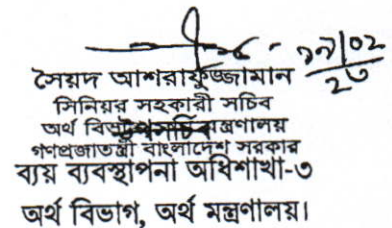 ১৭/০২
২৩
সৈয়দ আশরাফুজ্জামান
সিনিয়র সহকারী সচিব
অর্থ বিভাগ, অর্থ মন্ত্রণালয়
গণপ্রজাতন্ত্রী বাংলাদেশ সরকার
ব্যয় ব্যবস্থাপনা অধিশাখা-৩
অর্থ বিভাগ, অর্থ মন্ত্রণালয়।